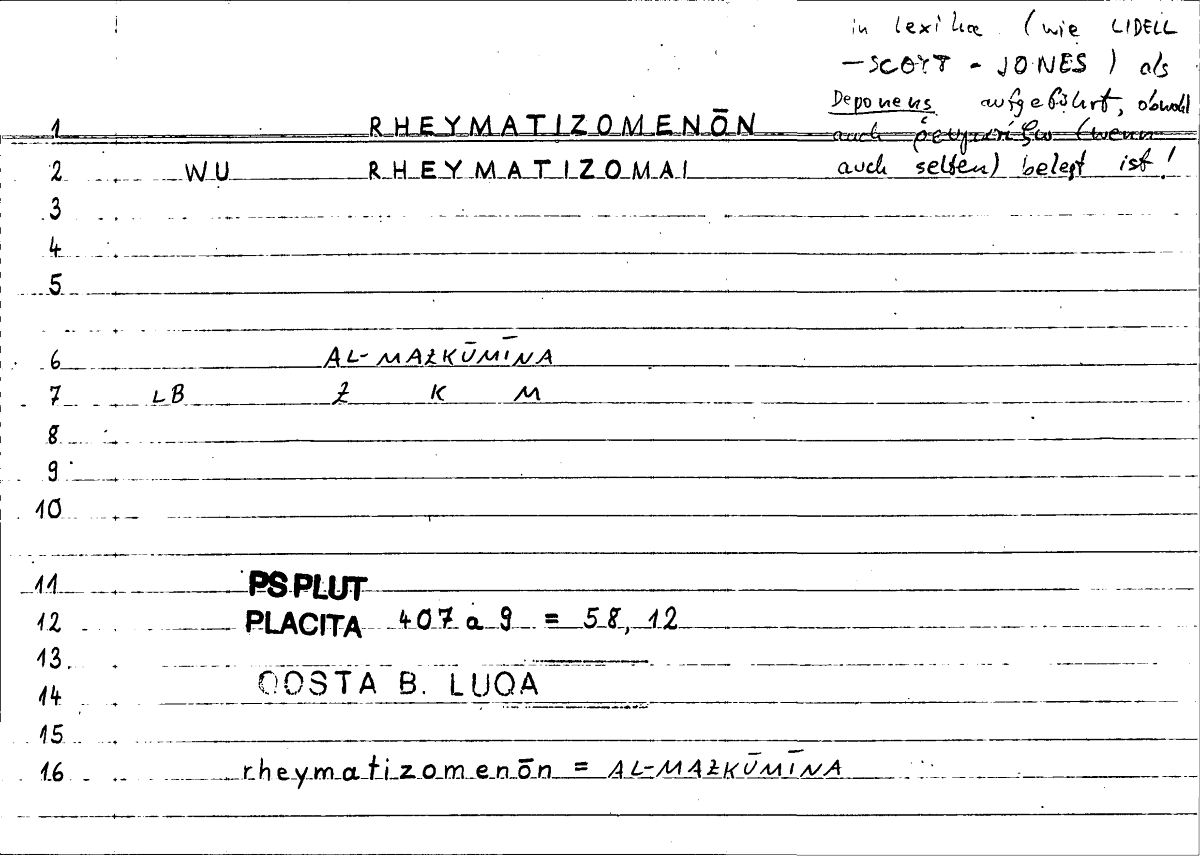 in lexika (wie LIDELL
– SCOTT - JONES) als
Deponens aufgeführt, obwohl
auch ῥευματίζω (wenn
auch selten) belegt ist!
1 RHEYMATIZOMENŌN
2 WU RHEYMATIZOMAI
3
4
5
6 AL-MAŻKŪMĪNA
7 LB Ż K M
8
9
10
11 PS.PLUT
12 PLACITA 407 a 9 = 58, 12
13
14 QOSTA B. LUQA
15
16 rheymatizomenōn = AL-MAŻKŪMĪNA